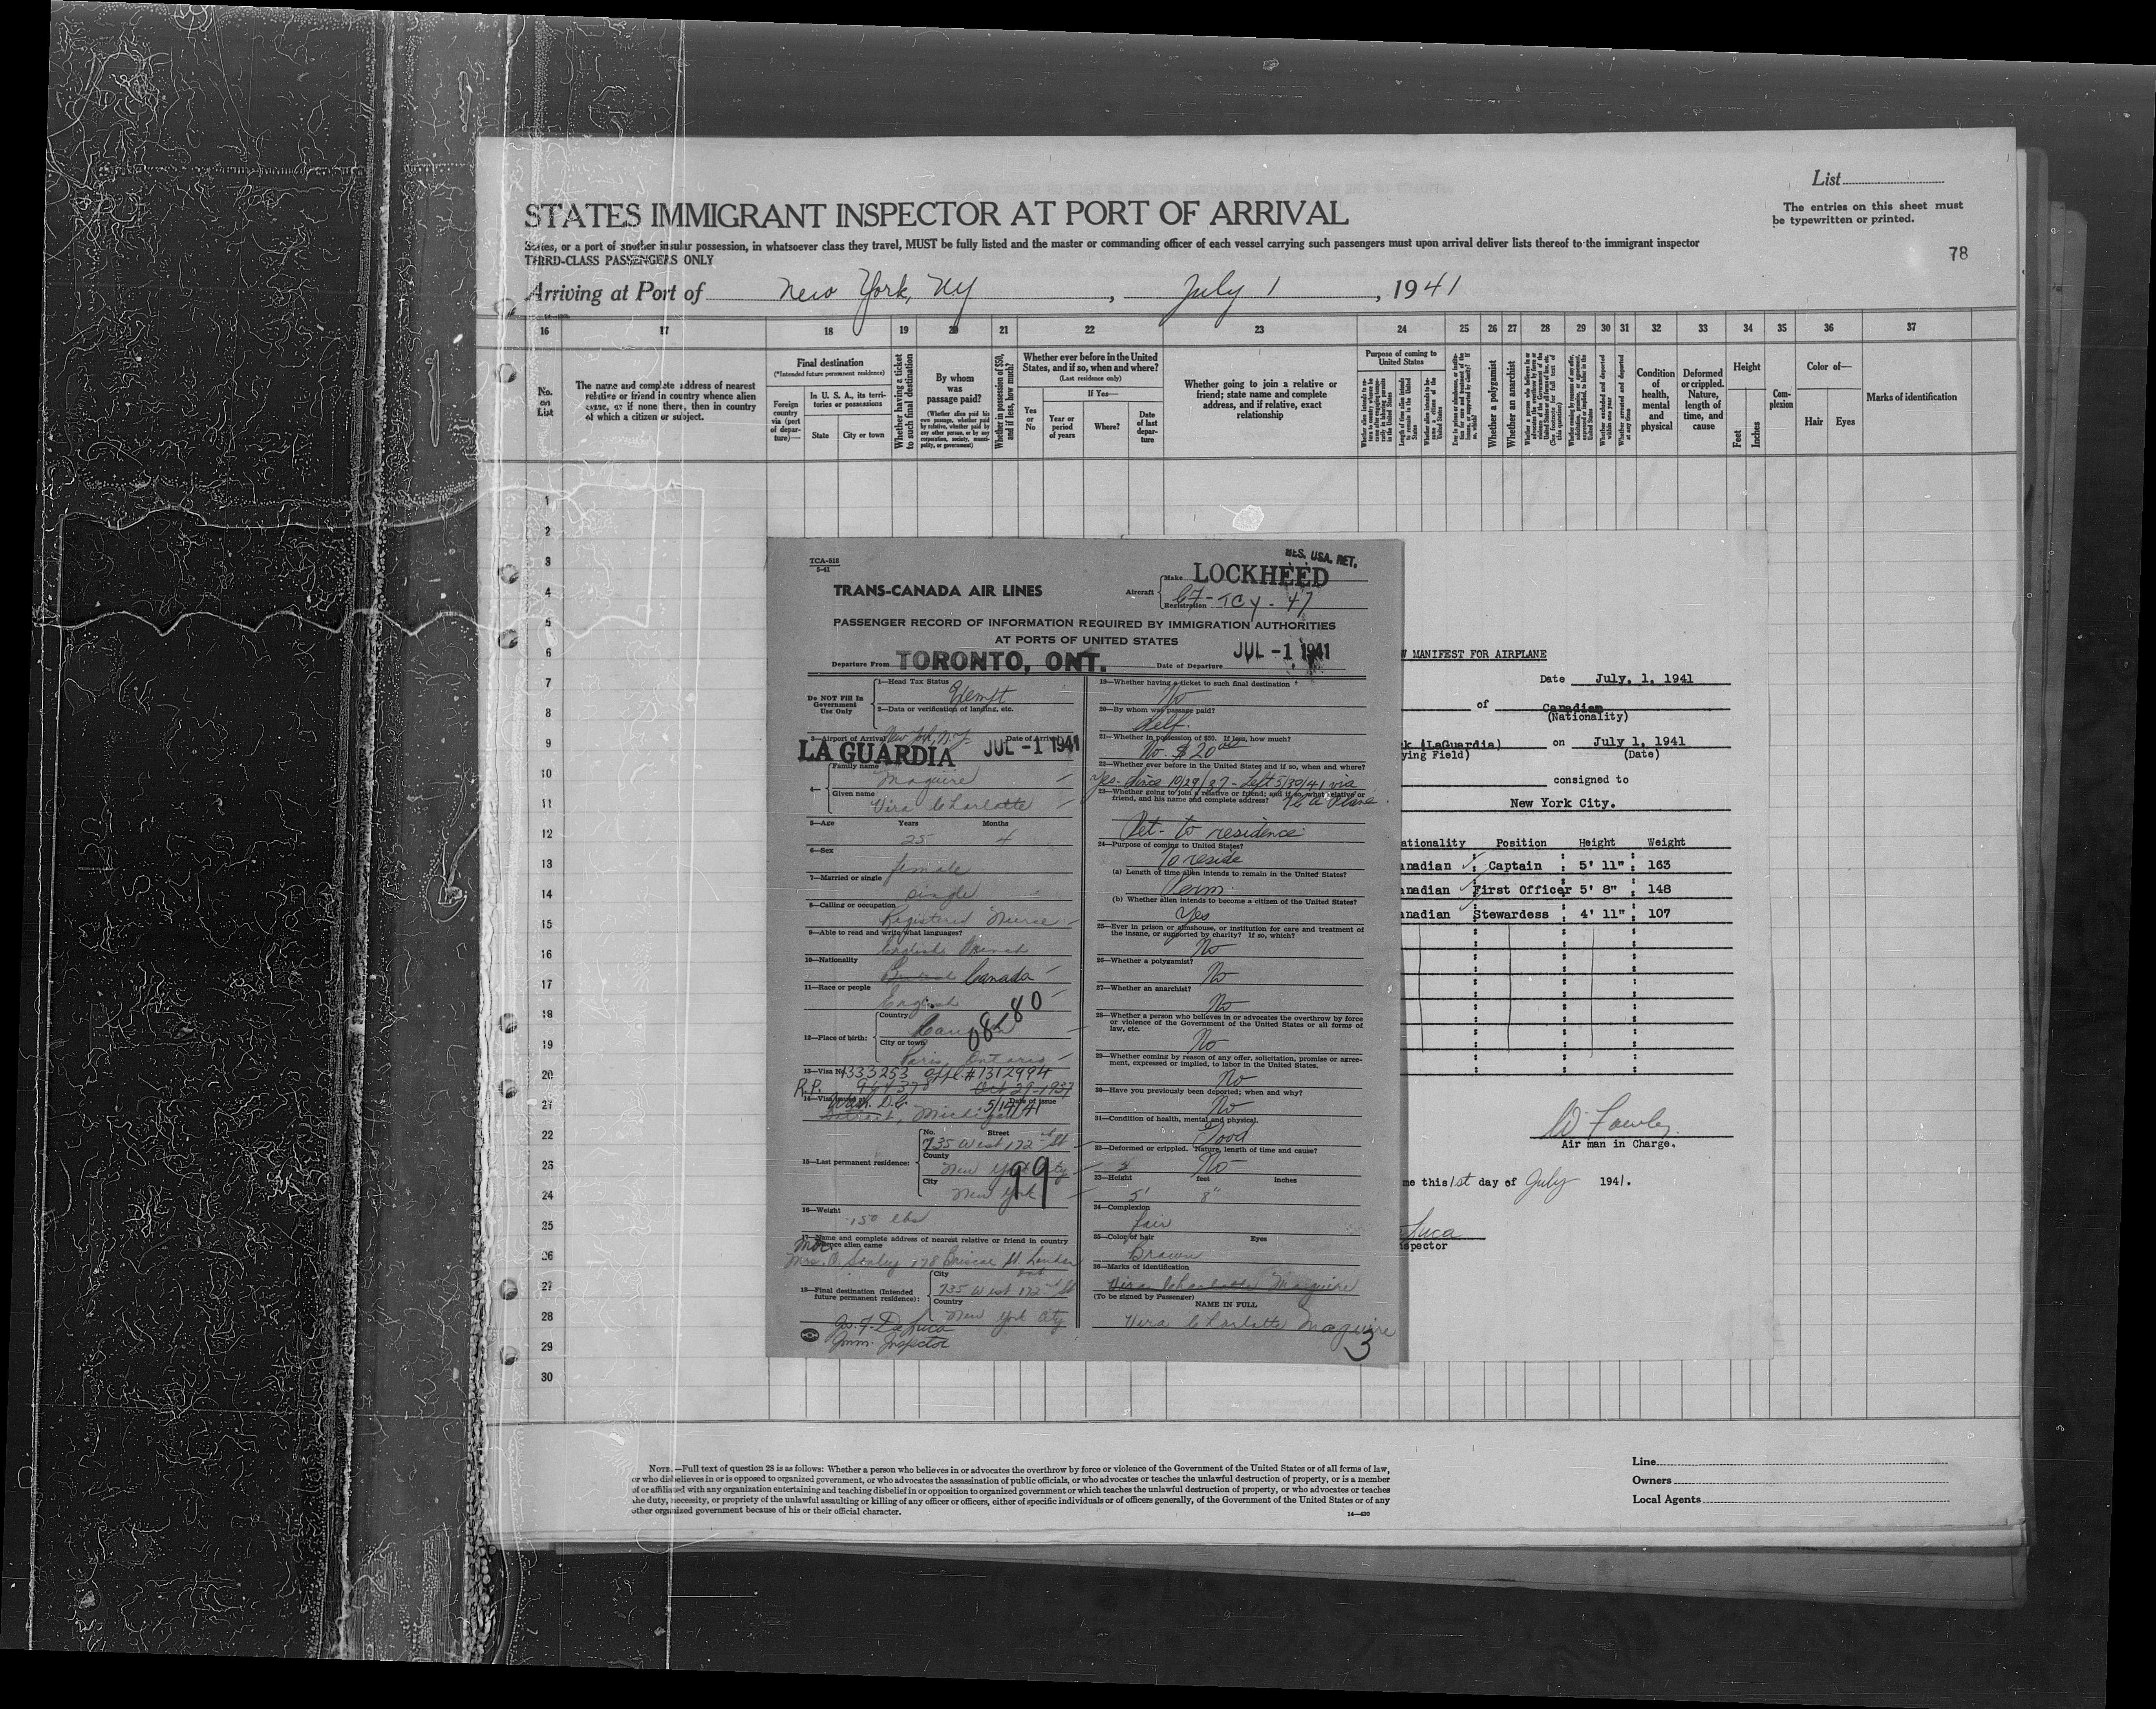 List
The entries on this sheet must
be typewritten or printed.
STATES IMMIGRANT INSPECTOR AT PORT OF ARRIVAL
States, or a port of another insular possession, in whatsoever class they travel, MUST be fully listed and the master or commanding officer of each vessel carrying such passengers must upon arrival deliver lists thereof to the immigrant inspector
THIRD-CLASS PASSENGERS ONLY
78
Arriving at Port of New York, NY, July 1, 1941
16 17 18 19 20 21 22 23 24 25 26 27 28 29 30 31 32 33 34 35 36 37
No. on List
The name and complete address of nearest relative or friend in country whence alien came, or if none there, then in country of which a citizen or subject.
Final destination
(*Intended future permanent residence)
Foreign country via (port of departure)—
In U. S. A., its territories or possessions
State
City or town
Whether having a ticket to such final destination
By whom was passage paid?
(Whether alien paid his own passage, whether paid by relative, whether paid by any other person, or by any corporation, society, municipality, or government)
Whether in possession of $50, and if less, how much?
Whether ever before in the United States, and if so, when and where?
(Last residence only)
Yes or No
If Yes—
Year or period of years
Where?
Date of last departure
Whether going to join a relative or friend; state name and complete address, and if relative, exact relationship
Purpose of coming to United States
Whether a polygamist
Whether an anarchist
Whether excluded and deported within one year
Whether arrested and deported at any time
Condition of health, mental and physical
Deformed or crippled. Nature, length of time, and cause
Height
Feet
Inches
Complexion
Color of—
Hair
Eyes
Marks of identification
1
2
3
4
5
6
7
8
9
10
11
12
13
14
15
16
17
18
19
20
21
22
23
24
25
26
27
28
29
30
TCA-518
5-41
USA. RET.
TRANS-CANADA AIR LINES
Aircraft
Make LOCKHEED
Registration CF-TCY-47
PASSENGER RECORD OF INFORMATION REQUIRED BY IMMIGRATION AUTHORITIES
AT PORTS OF UNITED STATES
Departure From TORONTO, ONT. Date of Departure JUL -1 1941
Do NOT Fill In
Government
Use Only
1—Head Tax Status
Exempt
2—Data or verification of landing, etc.
3—Airport of Arrival New York, N.Y. Date of Arrival
LA GUARDIA JUL -1 1941
4— Family name
Maguire
Given name
Vira Charlotte
5—Age Years Months
25 4
6—Sex
female
7—Married or single
single
8—Calling or occupation
Registered Nurse
9—Able to read and write what languages?
English
10—Nationality
Canada
11—Race or people
English
12—Place of birth: Country
Canada
08h 80
City or town
Paris, Ontario
13—Visa No. 1333253 appl. # 1312994
R.P. Oct 29-1937
14—Visa Date of issue
Wash. D.C. 5/14/41
Detroit, Michigan
15—Last permanent residence:
No. Street
735 West 172nd St
County
New York City
City
New York
99
16—Weight
150 lbs
17—Name and complete address of nearest relative or friend in country
whence alien came
178 Briscoe St. London
Ont
18—Final destination (Intended
future permanent residence):
City
735 West 172nd St
Country
New York City
DeLuca
Imm. Inspector
19—Whether having a ticket to such final destination
20—By whom was passage paid?
Self.
21—Whether in possession of $50. If less, how much?
No. $20.00
22—Whether ever before in the United States and if so, when and where?
Yes- Since 10/29/37 - Left 5/30/41 via
23—Whether going to join a relative or friend; and if so, what relative or
friend, and his name and complete address?
Ret- to residence
24—Purpose of coming to United States?
To reside
(a) Length of time alien intends to remain in the United States?
Perm.
(b) Whether alien intends to become a citizen of the United States?
Yes
25—Ever in prison or almshouse, or institution for care and treatment of
the insane, or supported by charity? If so, which?
No
26—Whether a polygamist?
No
27—Whether an anarchist?
No
28—Whether a person who believes in or advocates the overthrow by force
or violence of the Government of the United States or all forms of
law, etc.
No
29—Whether coming by reason of any offer, solicitation, promise or agree-
ment, expressed or implied, to labor in the United States.
No
30—Have you previously been deported; when and why?
No
31—Condition of health, mental and physical.
Good
32—Deformed or crippled. Nature, length of time and cause?
No
33—Height feet inches
5' 8"
34—Complexion
fair
35—Color of hair Eyes
Brown
36—Marks of identification
Vira Charlotte Maguire
(To be signed by Passenger)
NAME IN FULL
Vira Charlotte Maguire
3
W MANIFEST FOR AIRPLANE
Date July, 1, 1941
of Canadian
(Nationality)
k (LaGuardia) on July 1, 1941
ying Field) (Date)
consigned to
New York City.
ationality Position Height Weight
anadian : Captain : 5' 11" : 163
anadian First Officer 5' 8" : 148
anadian Stewardess : 4' 11" : 107
Air man in Charge.
me this 1st day of July 1941.
Luca
spector
NOTE.—Full text of question 28 is as follows: Whether a person who believes in or advocates the overthrow by force or violence of the Government of the United States or of all forms of law,
or who disbelieves in or is opposed to organized government, or who advocates the assassination of public officials, or who advocates or teaches the unlawful destruction of property, or is a member
of or affiliated with any organization entertaining and teaching disbelief in or opposition to organized government or which teaches the unlawful destruction of property, or who advocates or teaches
the duty, necessity, or propriety of the unlawful assaulting or killing of any officer or officers, either of specific individuals or of officers generally, of the Government of the United States or of any
other organized government because of his or their official character.
14—430
Line
Owners
Local Agents